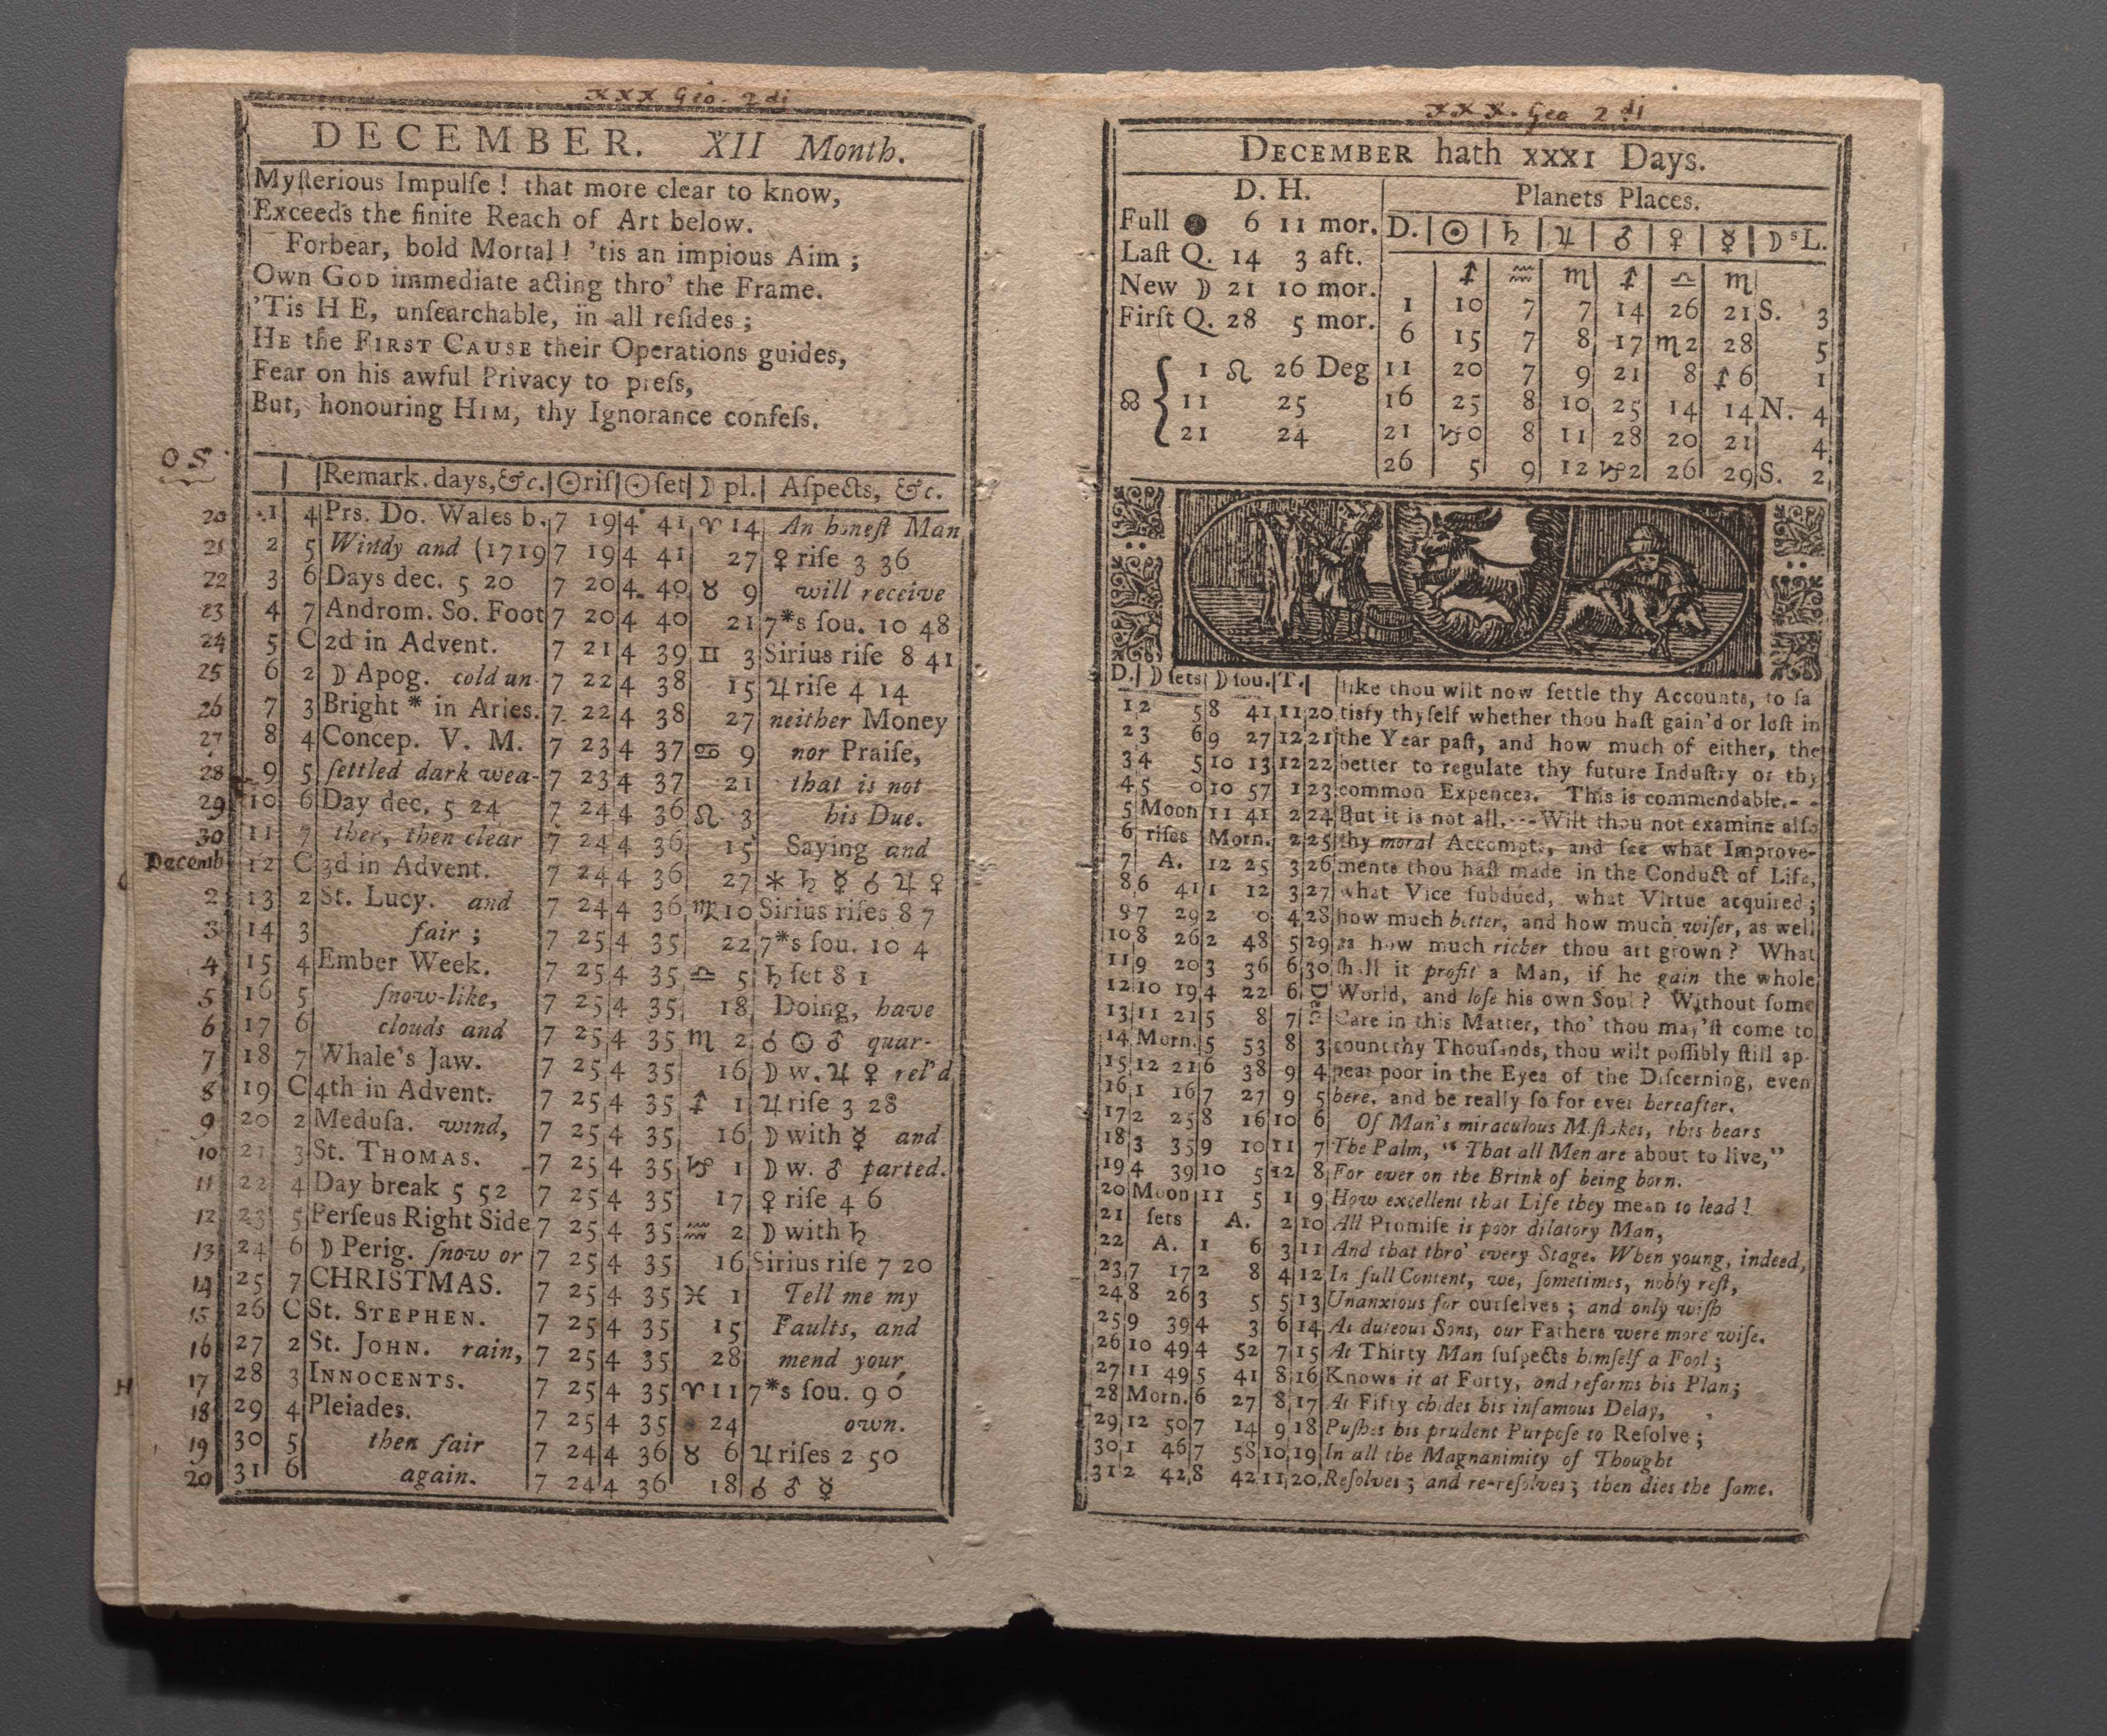 XXX Geo. 2di
DECEMBER. XII Month.
Myſterious Impulſe ! that more clear to know,
Exceeds the finite Reach of Art below.
Forbear, bold Mortal ! 'tis an impious Aim ;
Own GOD immediate acting thro' the Frame.
'Tis H E, unſearchable, in all reſides ;
HE the FIRST CAUSE their Operations guides,
Fear on his awful Privacy to preſs,
But, honouring HIM, thy Ignorance confeſs.
O S
Remark. days, &c. ☉riſ ☉ſet ☽ pl. Aſpects, &c.
20 1 4 Prs. Do. Wales b. 7 19 4 41 ♈ 14 An honeſt Man
21 2 5 Windy and (1719 7 19 4 41 27 ♀ riſe 3 36
22 3 6 Days dec. 5 20 7 20 4 40 ♉ 9 will receive
23 4 7 Androm. So. Foot 7 20 4 40 21 7*s ſou. 10 48
24 5 C 2d in Advent. 7 21 4 39 ♊ 3 Sirius riſe 8 41
25 6 2 ☽ Apog. cold un- 7 22 4 38 15 ♃ riſe 4 14
26 7 3 Bright * in Aries. 7 22 4 38 27 neither Money
27 8 4 Concep. V. M. 7 23 4 37 ♋ 9 nor Praiſe,
28 9 5 ſettled dark wea- 7 23 4 37 21 that is not
29 10 6 Day dec. 5 24 7 24 4 36 ♌ 3 his Due.
30 11 7 ther, then clear 7 24 4 36 15 Saying and
Decemb 12 C 3d in Advent. 7 24 4 36 27 ⚹ ♄ ☿ ☌ ♃ ♀
2 13 2 St. Lucy. and 7 24 4 36 ♍ 10 Sirius riſes 8 7
3 14 3 fair ; 7 25 4 35 22 7*s ſou. 10 4
4 15 4 Ember Week. 7 25 4 35 ♎ 5 ♄ ſet 8 1
5 16 5 ſnow-like, 7 25 4 35 18 Doing, have
6 17 6 clouds and 7 25 4 35 ♏ 2 ☌ ☉ ♂ quar-
7 18 7 Whale's Jaw. 7 25 4 35 16 ☽ w. ♃ ♀ rel'd
8 19 C 4th in Advent. 7 25 4 35 ♐ 1 ♃ riſe 3 28
9 20 2 Meduſa. wind, 7 25 4 35 16 ☽ with ☿ and
10 21 3 St. THOMAS. 7 25 4 35 ♑ 1 ☽ w. ♂ parted.
11 22 4 Day break 5 52 7 25 4 35 17 ♀ riſe 4 6
12 23 5 Perſeus Right Side 7 25 4 35 ♒ 2 ☽ with ♄
13 24 6 ☽ Perig. ſnow or 7 25 4 35 16 Sirius riſe 7 20
14 25 7 CHRISTMAS. 7 25 4 35 ♓ 1 Tell me my
15 26 C St. STEPHEN. 7 25 4 35 15 Faults, and
16 27 2 St. JOHN. rain, 7 25 4 35 28 mend your
H 17 28 3 INNOCENTS. 7 25 4 35 ♈ 11 7*s ſou. 9 0
18 29 4 Pleiades. 7 25 4 35 24 own.
19 30 5 then fair 7 24 4 36 ♉ 6 ♃ riſes 2 50
20 31 6 again. 7 24 4 36 18 ☌ ♂ ☿
XXX. Geo 2di
DECEMBER hath XXXI Days.
D. H.
Full ● 6 11 mor.
Laſt Q. 14 3 aft.
New ☽ 21 10 mor.
Firſt Q. 28 5 mor.
☊ { 1 ♌ 26 Deg
11 25
21 24
Planets Places.
D. ☉ ♄ ♃ ♂ ♀ ☿ ☽sL.
♐ ♒ ♏ ♐ ♎ ♏
1 10 7 7 14 26 21 S. 3
6 15 7 8 17 ♏2 28 5
11 20 7 9 21 8 ♐6 1
16 25 8 10 25 14 14 N. 4
21 ♑0 8 11 28 20 21 4
26 5 9 12 ♑2 26 29 S. 2
D. ☽ ſets ☽ ſou. T. like thou wilt now ſettle thy Accounts, to ſa
1 2 58 41 11 20 tisfy thyſelf whether thou haſt gain'd or loſt in
2 3 6 9 27 12 21 the Year paſt, and how much of either, the
3 4 5 10 13 12 22 better to regulate thy future Induſtry or thy
4 5 0 10 57 1 23 common Expences. This is commendable.- -
5 Moon 11 41 2 24 But it is not all.---Wilt thou not examine alſo
6 riſes Morn. 2 25 thy moral Accompts, and ſee what Improve-
7 A. 12 25 3 26 ments thou haſt made in the Conduct of Life,
8 6 41 1 12 3 27 what Vice ſubdued, what Virtue acquired ;
9 7 29 2 0 4 28 how much better, and how much wiſer, as well
10 8 26 2 48 5 29 as how much richer thou art grown ? What
11 9 20 3 36 6 30 ſhall it profit a Man, if he gain the whole
12 10 19 4 22 6 D World, and loſe his own Soul ? Without ſome
13 11 21 5 8 7 Care in this Matter, tho' thou may'ſt come to
14 Morn. 5 53 8 3 count thy Thouſands, thou wilt poſſibly ſtill ap-
15 12 21 6 38 9 4 pear poor in the Eyes of the Diſcerning, even
16 1 16 7 27 9 5 here, and be really ſo for ever hereafter.
17 2 25 8 16 10 6 Of Man's miraculous Miſtakes, this bears
18 3 35 9 10 11 7 The Palm, “ That all Men are about to live,”
19 4 39 10 5 12 8 For ever on the Brink of being born.
20 Moon 11 5 1 9 How excellent that Life they mean to lead !
21 ſets A. 2 10 All Promiſe is poor dilatory Man,
22 A. 1 6 3 11 And that thro' every Stage. When young, indeed,
23 7 17 2 8 4 12 In full Content, we, ſometimes, nobly reſt,
24 8 26 3 5 5 13 Unanxious for ourſelves ; and only wiſh
25 9 39 4 3 6 14 As duteous Sons, our Fathers were more wiſe.
26 10 49 4 52 7 15 At Thirty Man ſuſpects himſelf a Fool ;
27 11 49 5 41 8 16 Knows it at Forty, and reforms his Plan;
28 Morn. 6 27 8 17 At Fifty chides his infamous Delay,
29 12 50 7 14 9 18 Puſhes his prudent Purpoſe to Reſolve ;
30 1 46 7 58 10 19 In all the Magnanimity of Thought
31 2 42 8 42 11 20 Reſolves ; and re-reſolves ; then dies the ſame.